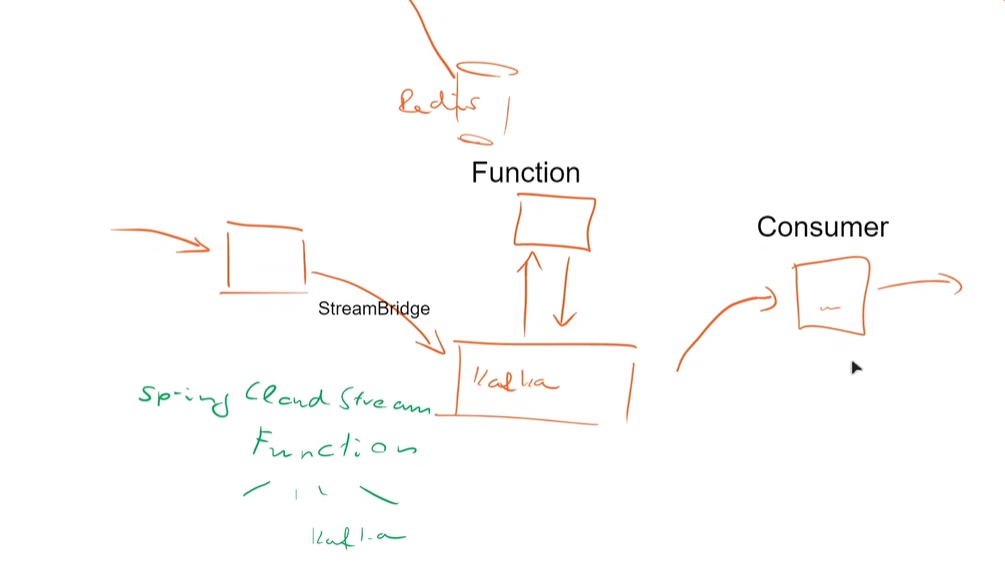 Redis
Function
Consumer
StreamBridge
Kafka
Spring Cloud Stream
Function
Kafka